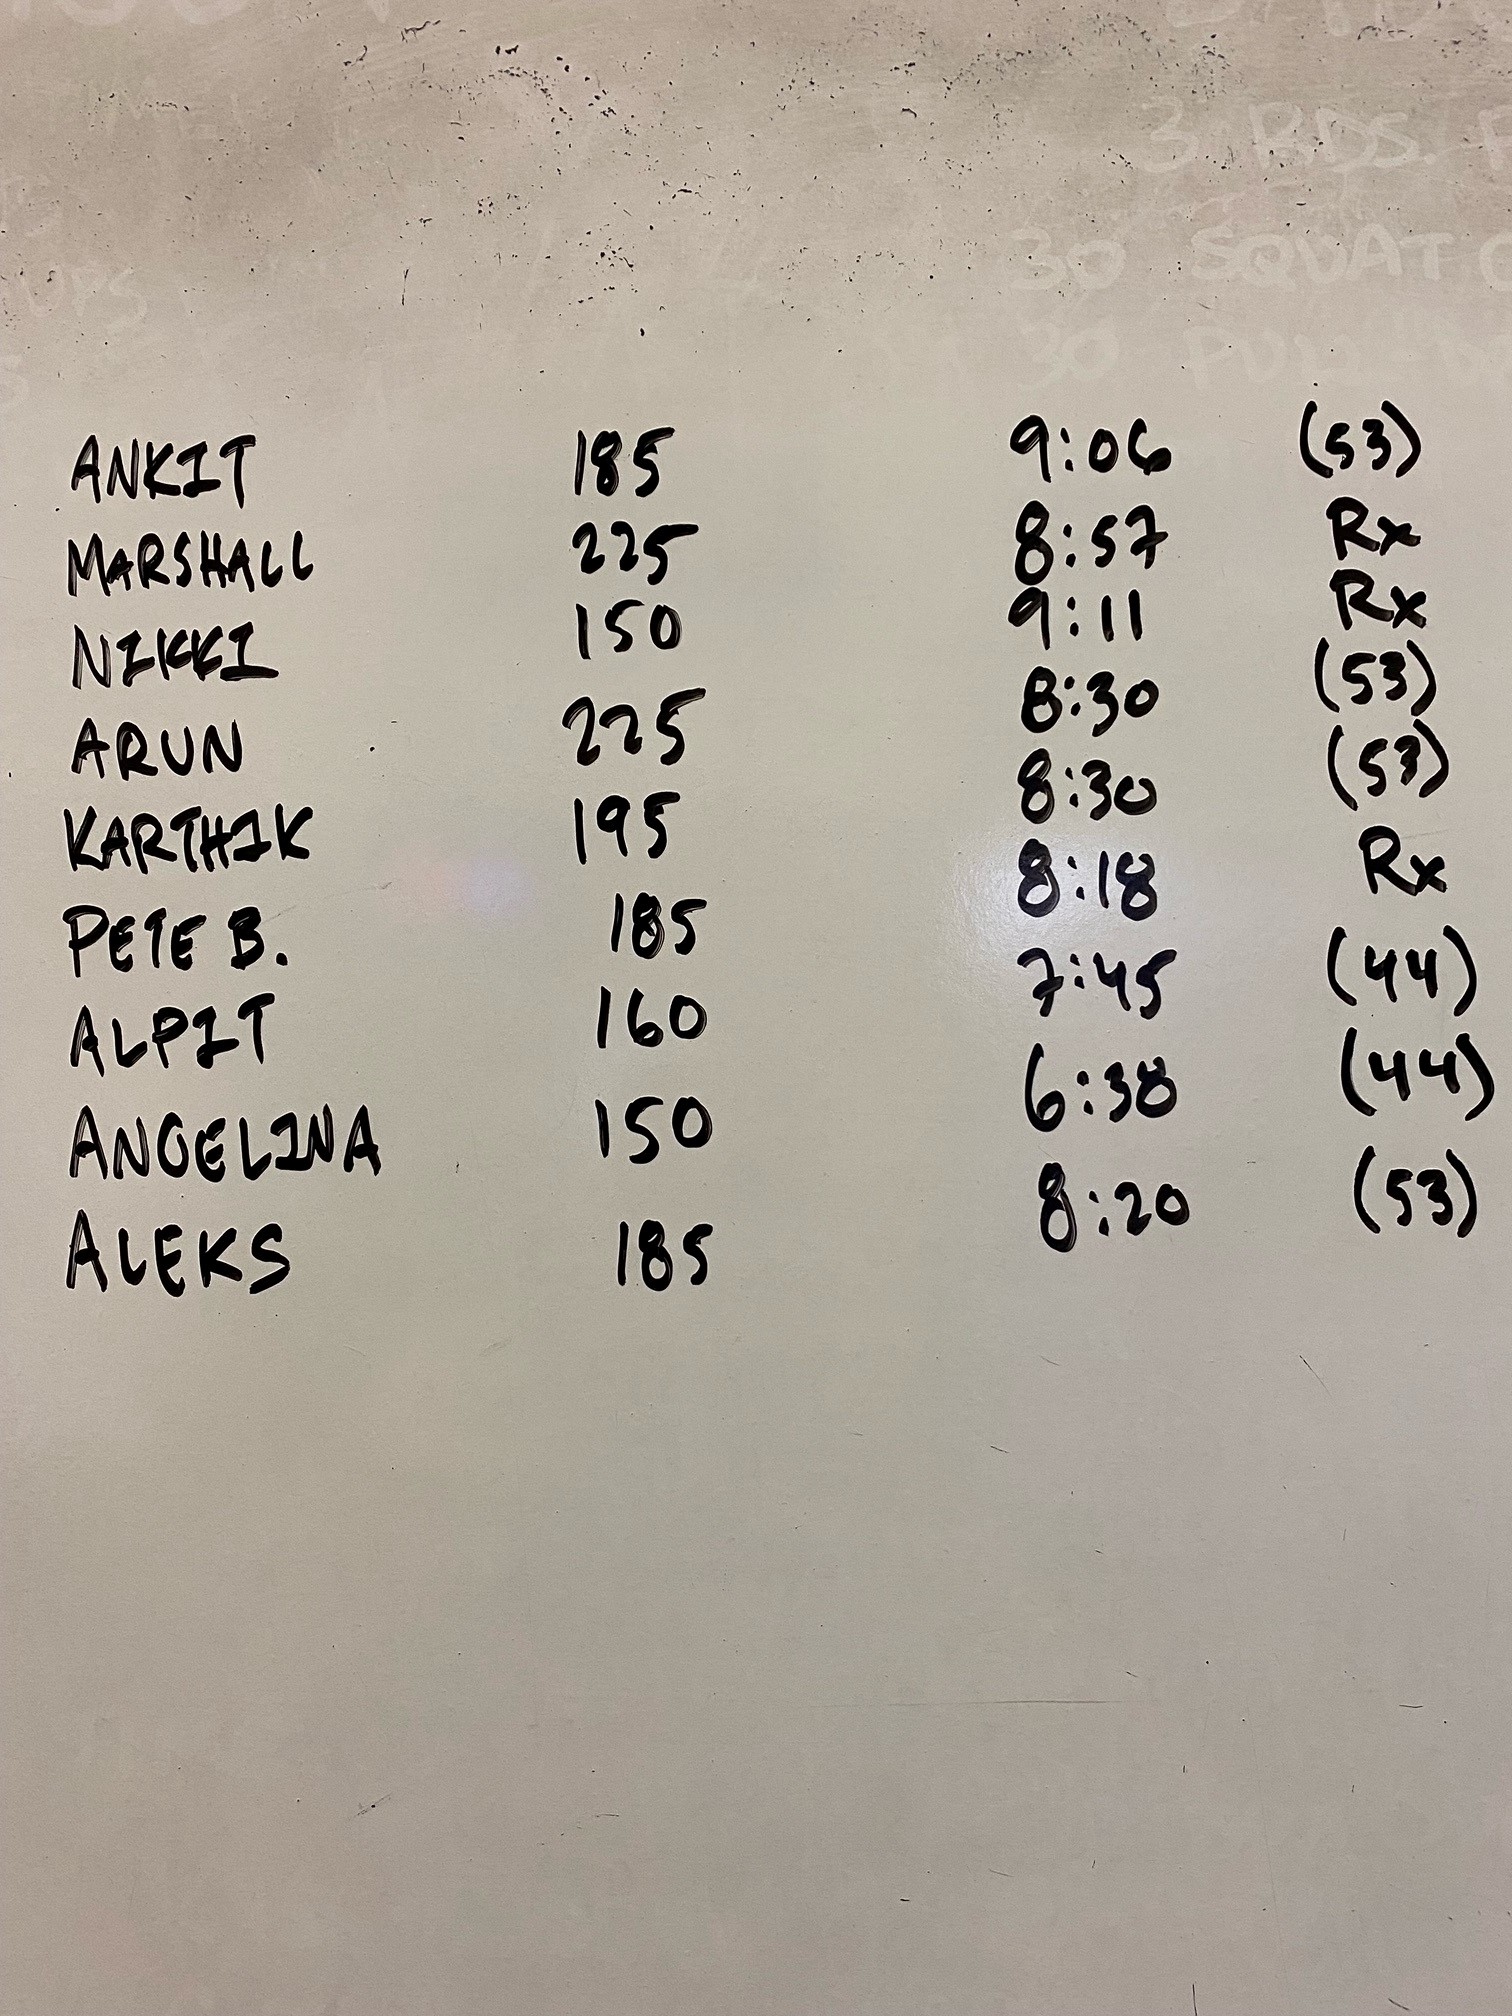 3 RDS.
30 SQUAT
30 PULL-
UPS
ANKIT 185 9:06 (53)
MARSHALL 225 8:57 Rx
NIKKI 150 9:11 Rx
ARUN 225 8:30 (53)
KARTHIK 195 8:30 (53)
PETE B. 185 8:18 Rx
ALPIT 160 7:45 (44)
ANGELINA 150 6:38 (44)
ALEKS 185 8:20 (53)